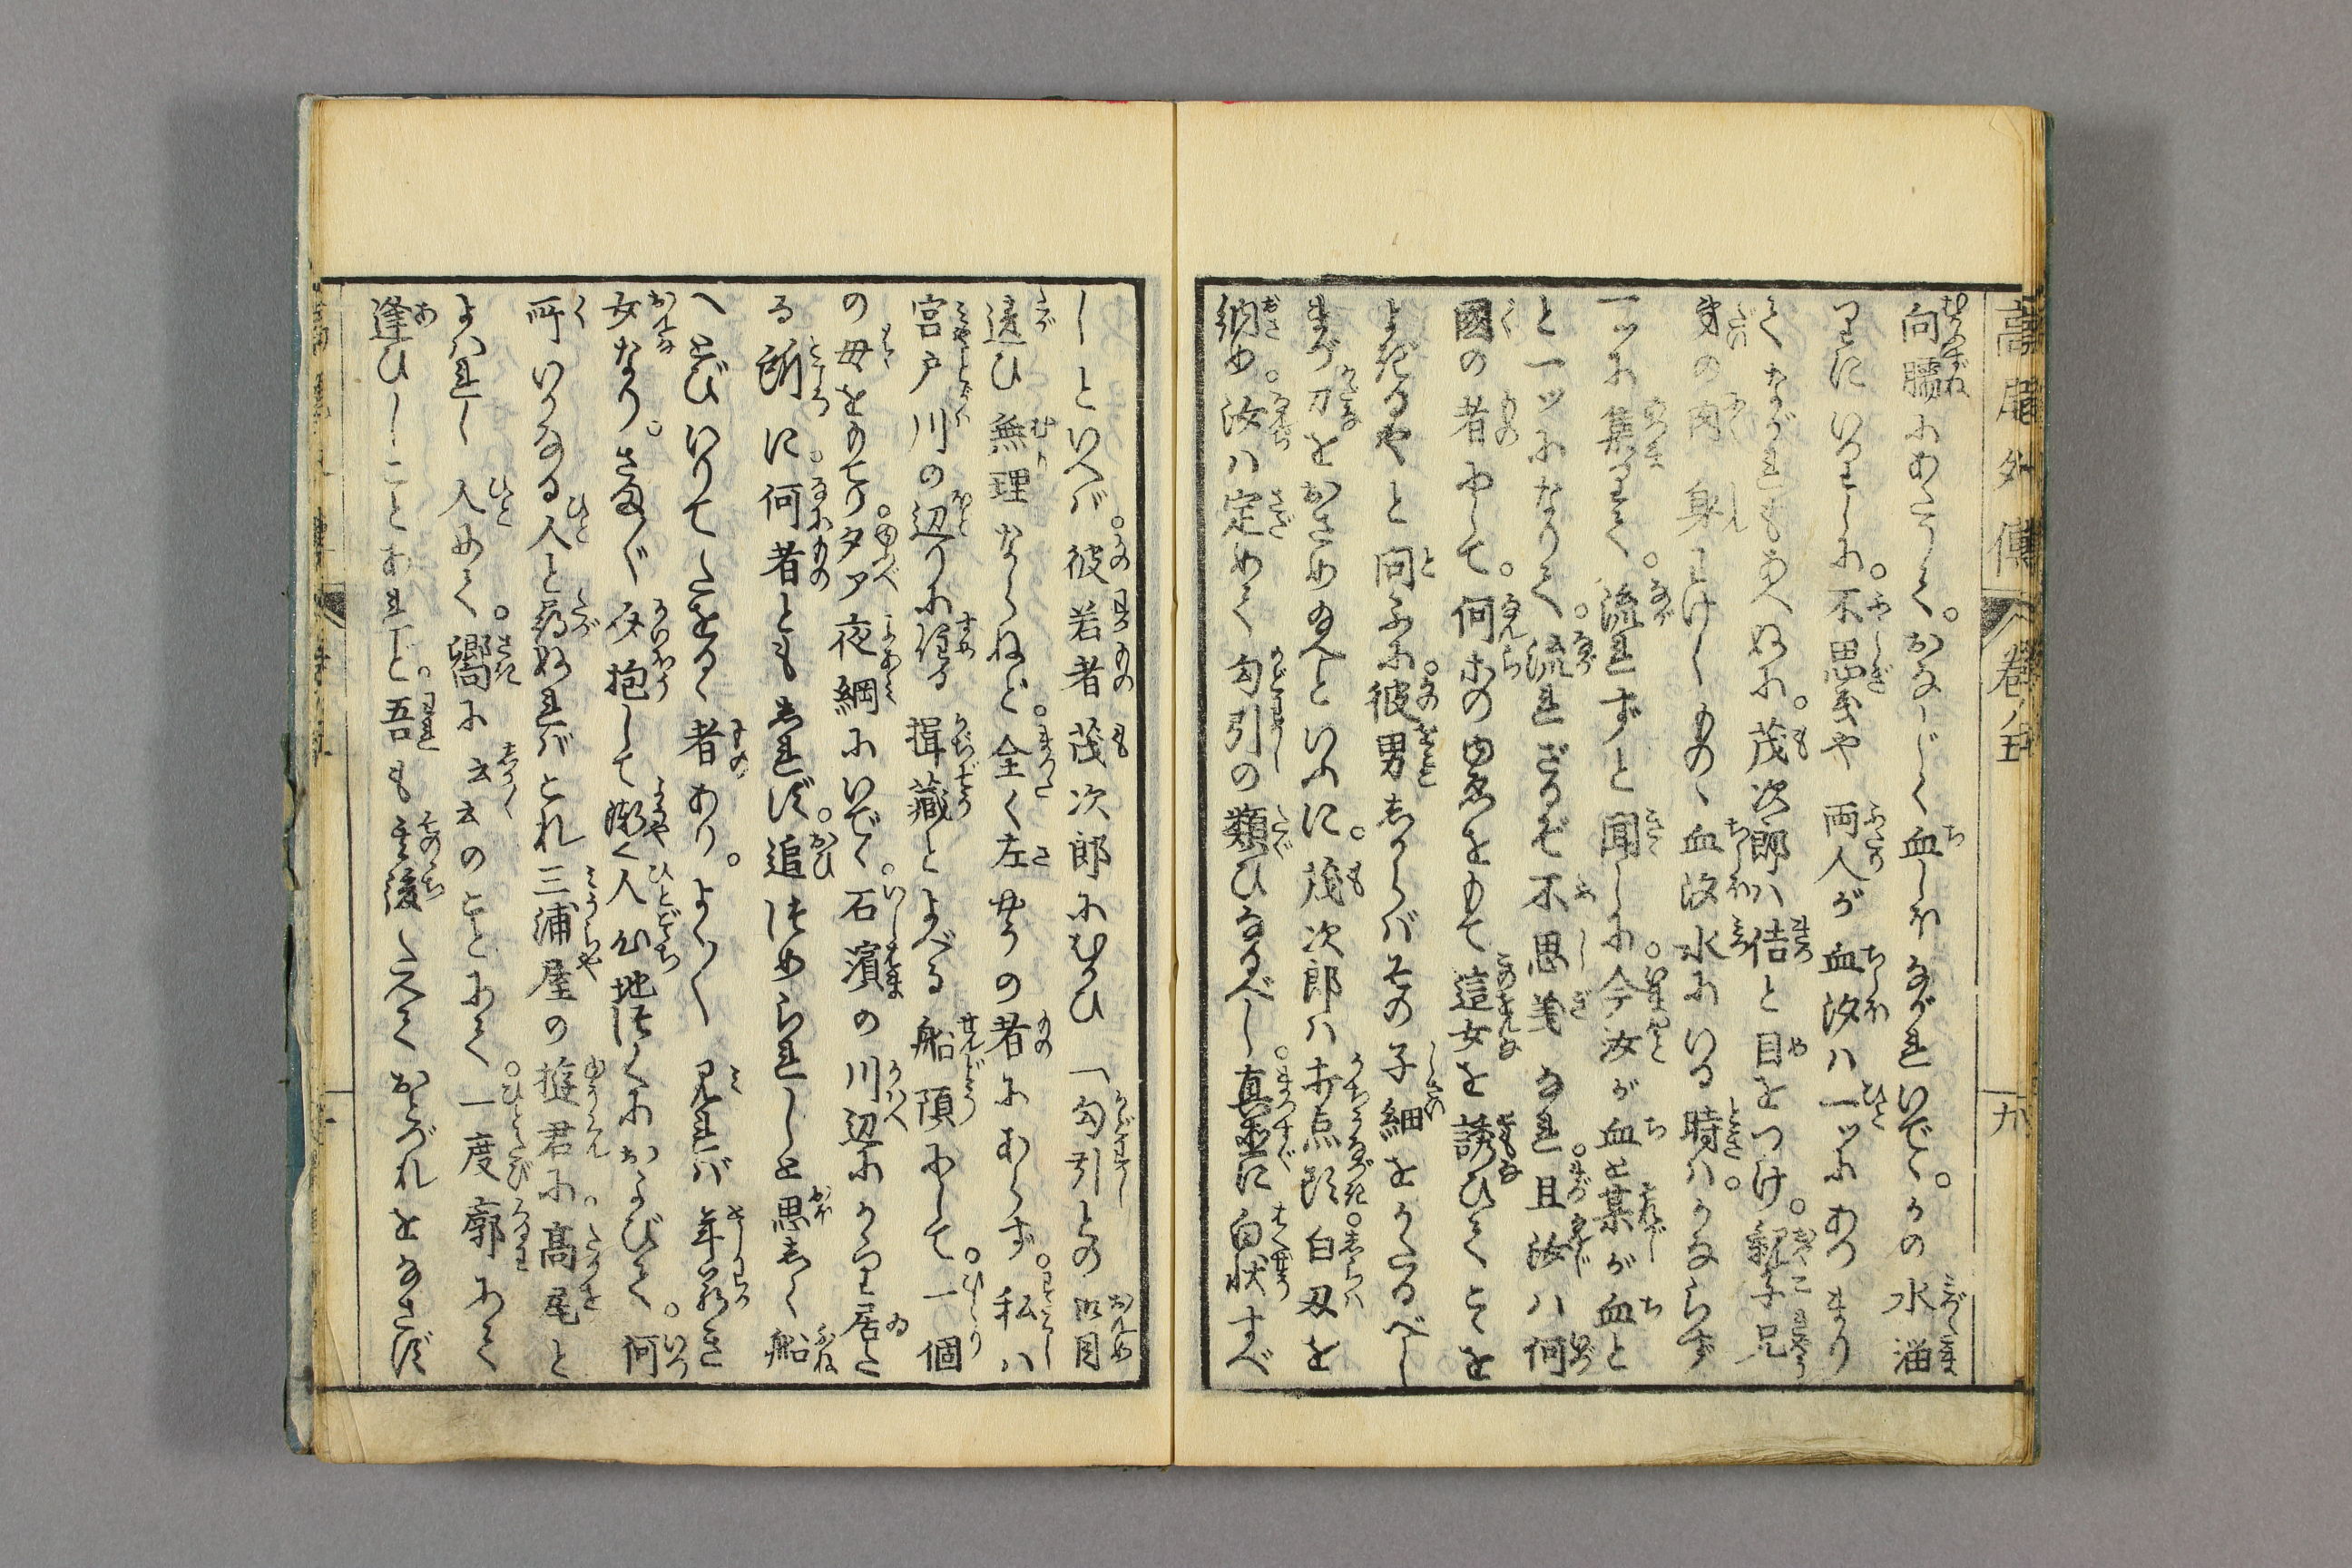 高尾外傳 巻ノ五 九
向臑にあたりて。おなじく血しほながれいで。かの水溜
りにいりしに。不思義や両人が血汐ハ一ッにあつまり
てながれもあへぬに。茂次郎ハ佶と目をつけ。親子兄
弟の肉身わけしものゝ血汐水にいる時ハ。かならず
一ッに集りて。流れずと聞しに。今汝が血と某が血と
と一ッになりて。流れざるぞ不思義なれ。且汝ハ何
國の者にして。何ホのゆゑをもて這女を誘ひてこゝを
よぎるやと問ふに。彼男しからバその子細をかたるべし
まづ刀をおさめ給へといふに。茂次郎ハ打点頭。白刄を
納め。汝ハ定めて勾引の類ひなるべし。真直に白状すべ
しといへバ。彼若者茂次郎にむかひ「勾引との御目
違ひ無理ならねど。全く左せうの者にあらず。私ハ
宮戸川の辺りに住る楫藏とよべる船頭にして。一個
の母をもてり。夕ア夜網にいで。石濱の川辺にかゝり居た
る所に。何者ともしれず。追はめられしと思しく船
へとびいりてたをるゝ者あり。よく〳〵見れバ年若き
女なり。さま〴〵介抱して漸く人心地つくにおよびて。何
所いかなる人と尋ぬれバこれ三浦屋の遊君に。高尾と
よバれし人めて。嚮に云云のことにて。一度廓にて
逢ひしことあれど。吾も其後たえておとづれをなさず